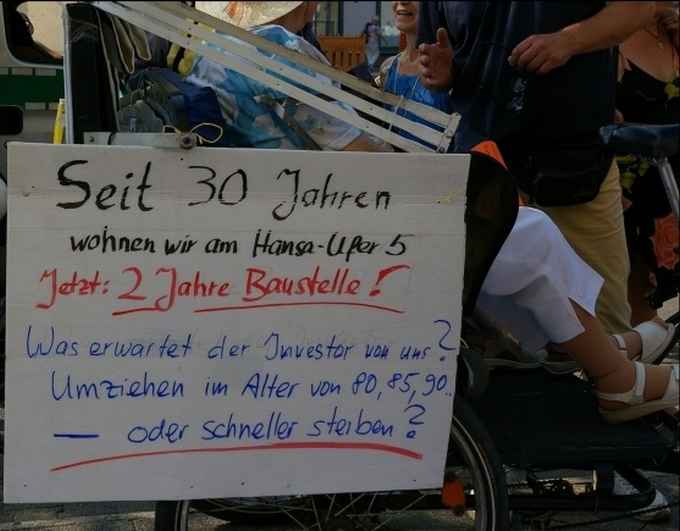 Seit 30 Jahren
wohnen wir am Hansa-Ufer 5
Jetzt: 2 Jahre Baustelle!
Was erwartet der Investor von uns?
Umziehen im Alter von 80, 85, 90..
— oder schneller steiben?